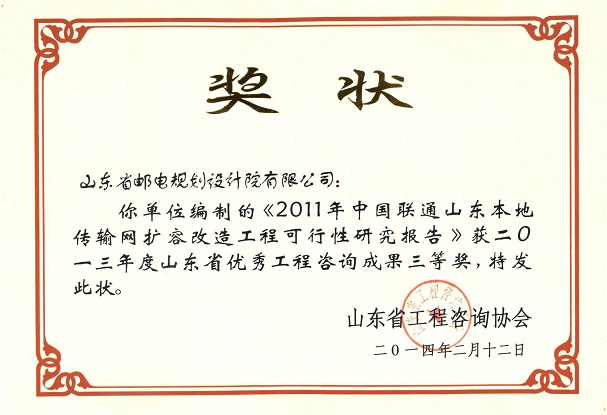 奖状
山东省邮电规划设计院有限公司：
你单位编制的《2011年中国联通山东本地
传输网扩容改造工程可行性研究报告》获二〇
一三年度山东省优秀工程咨询成果三等奖，特发
此状。
山东省工程咨询协会
二〇一四年二月十二日